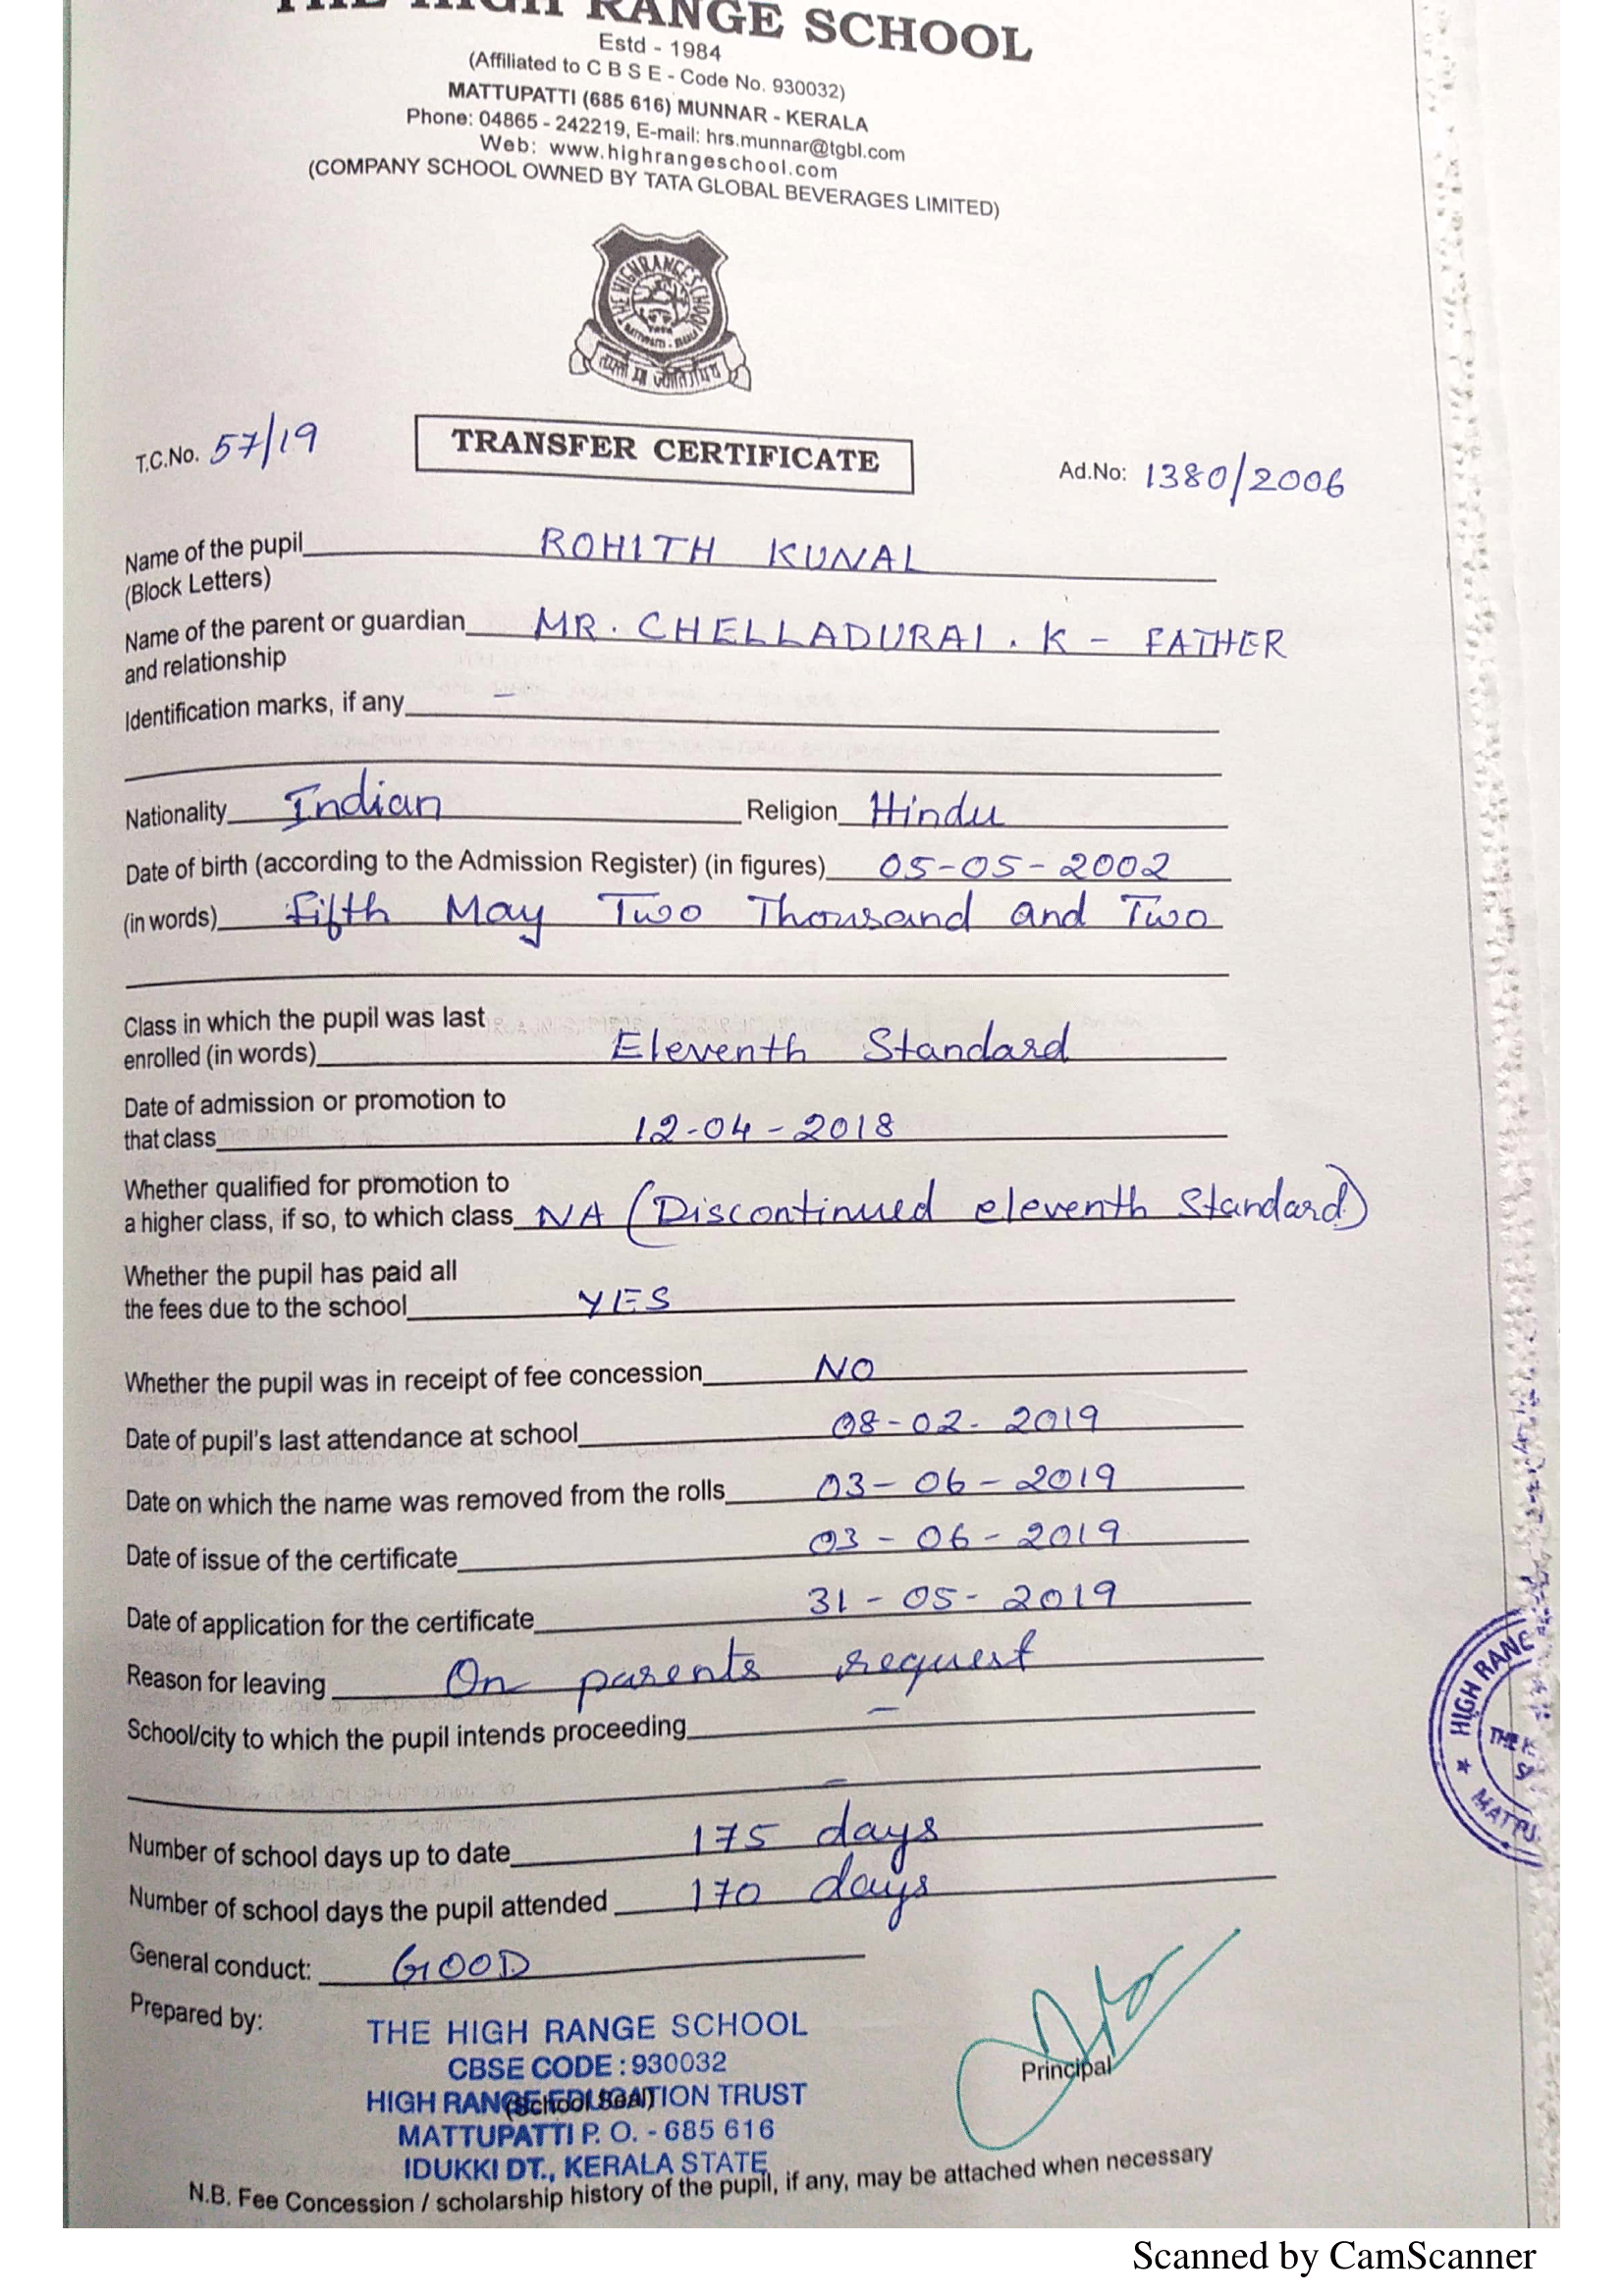 THE HIGH RANGE SCHOOL
Estd - 1984
(Affiliated to C B S E - Code No. 930032)
MATTUPATTI (685 616) MUNNAR - KERALA
Phone: 04865 - 242219, E-mail: hrs.munnar@tgbl.com
Web: www.highrangeschool.com
(COMPANY SCHOOL OWNED BY TATA GLOBAL BEVERAGES LIMITED)
THE HIGH RANGE SCHOOL
T.C.No. 57/19
TRANSFER CERTIFICATE
Ad.No: 1380/2006
Name of the pupil ROHITH KUNAL
(Block Letters)
Name of the parent or guardian MR. CHELLADURAI . K - FATHER
and relationship
Identification marks, if any -
Nationality Indian Religion Hindu
Date of birth (according to the Admission Register) (in figures) 05-05-2002
(in words) Fifth May Two Thousand and Two
Class in which the pupil was last
enrolled (in words) Eleventh Standard
Date of admission or promotion to
that class 12-04-2018
Whether qualified for promotion to
a higher class, if so, to which class NA (Discontinued eleventh Standard)
Whether the pupil has paid all
the fees due to the school YES
Whether the pupil was in receipt of fee concession NO
Date of pupil's last attendance at school 08-02-2019
Date on which the name was removed from the rolls 03-06-2019
Date of issue of the certificate 03-06-2019
Date of application for the certificate 31-05-2019
Reason for leaving On parents request
School/city to which the pupil intends proceeding -
-
HIGH RANGE
THE
MATTU
Number of school days up to date 175 days
Number of school days the pupil attended 170 days
General conduct: GOOD
Prepared by:
THE HIGH RANGE SCHOOL
CBSE CODE : 930032
Principal
HIGH RANGE EDUCATION TRUST
(School Seal)
MATTUPATTI P. O. - 685 616
IDUKKI DT., KERALA STATE
N.B. Fee Concession / scholarship history of the pupil, if any, may be attached when necessary
Scanned by CamScanner